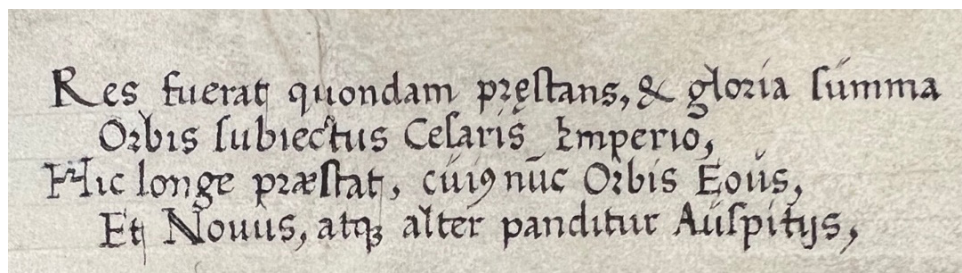 Res fuerat quondam pręstans, & gloria summa
Orbis subiectus Cesaris Imperio,
Hic longe præstat, cuiꝰ nūc Orbis Eous,
Et Nouus, atqꝫ alter panditur Auspitijs,